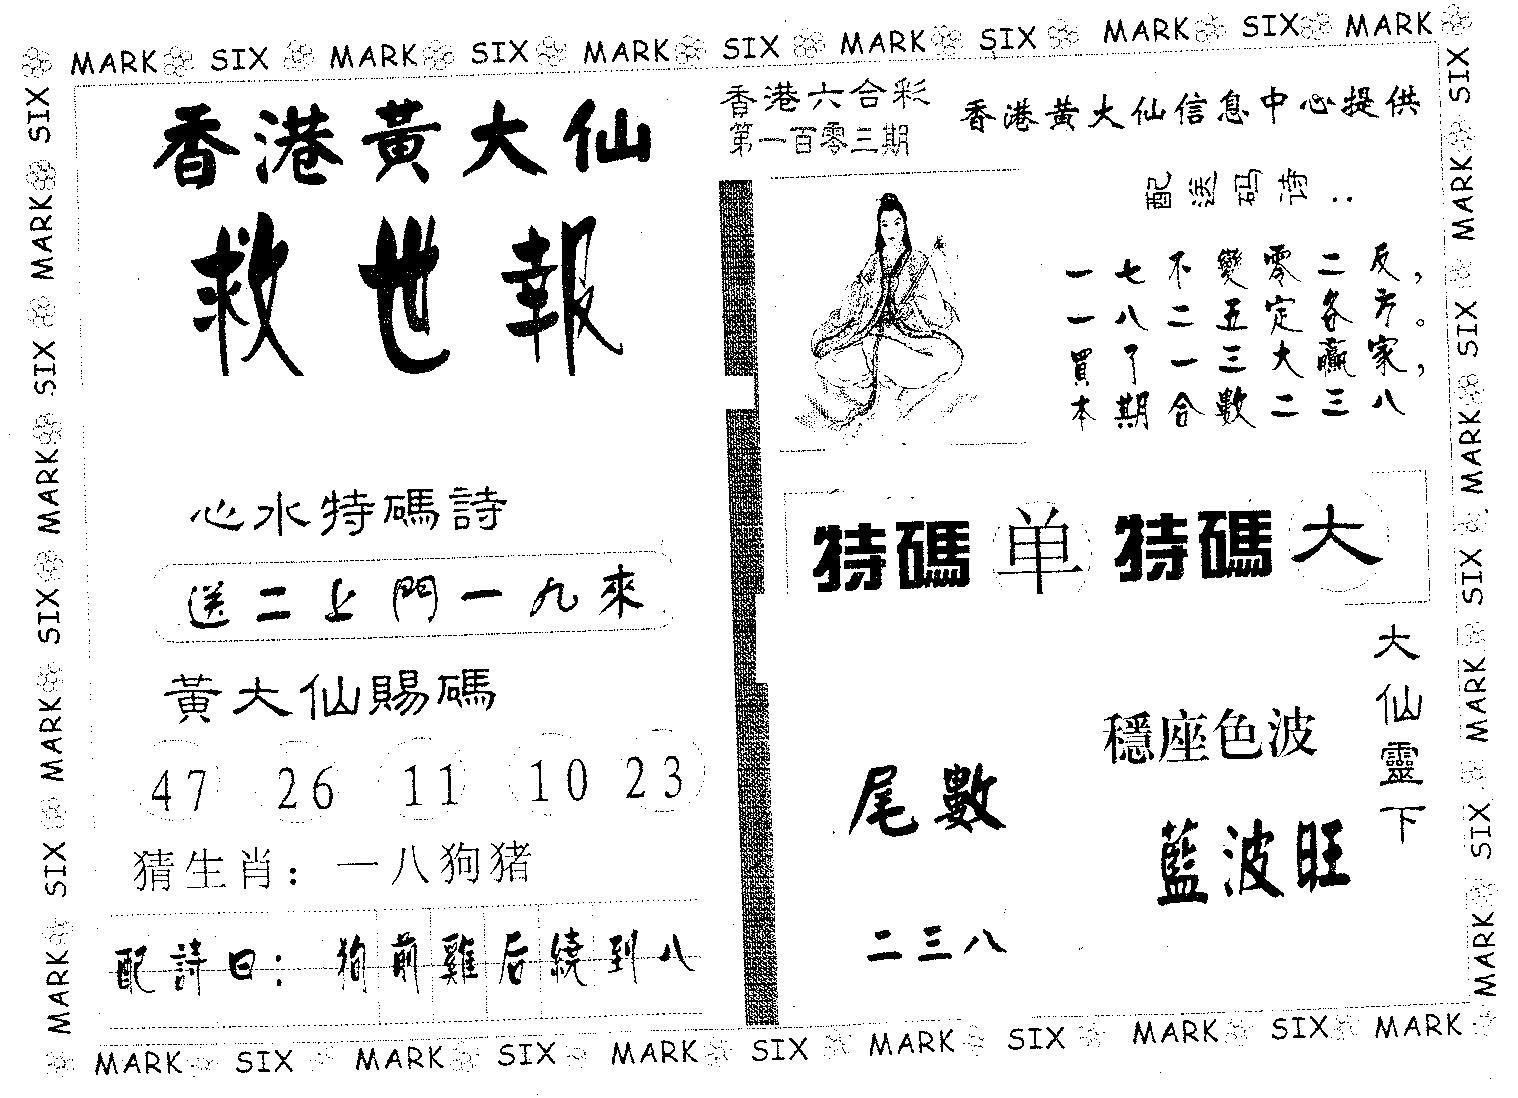 MARK SIX MARK SIX MARK SIX MARK SIX MARK SIX MARK
香港黃大仙
救世報
心水特碼詩
送二上門一九來
黃大仙賜碼
47 26 11 10 23
猜生肖：一八狗猪
配詩曰：狗前雞后繞到八
香港六合彩
第一百零三期
香港黃大仙信息中心提供
配送码诗..
一七不變零二反，
一八二五定各方。
買了一三大贏家，
本期合數二三八
特碼单 特碼大
大仙靈下
穩座色波
藍波旺
尾數
二三八
SIX MARK SIX MARK SIX MARK SIX MARK
SIX MARK SIX MARK SIX MARK SIX MARK
MARK SIX MARK SIX MARK SIX MARK SIX MARK SIX MARK